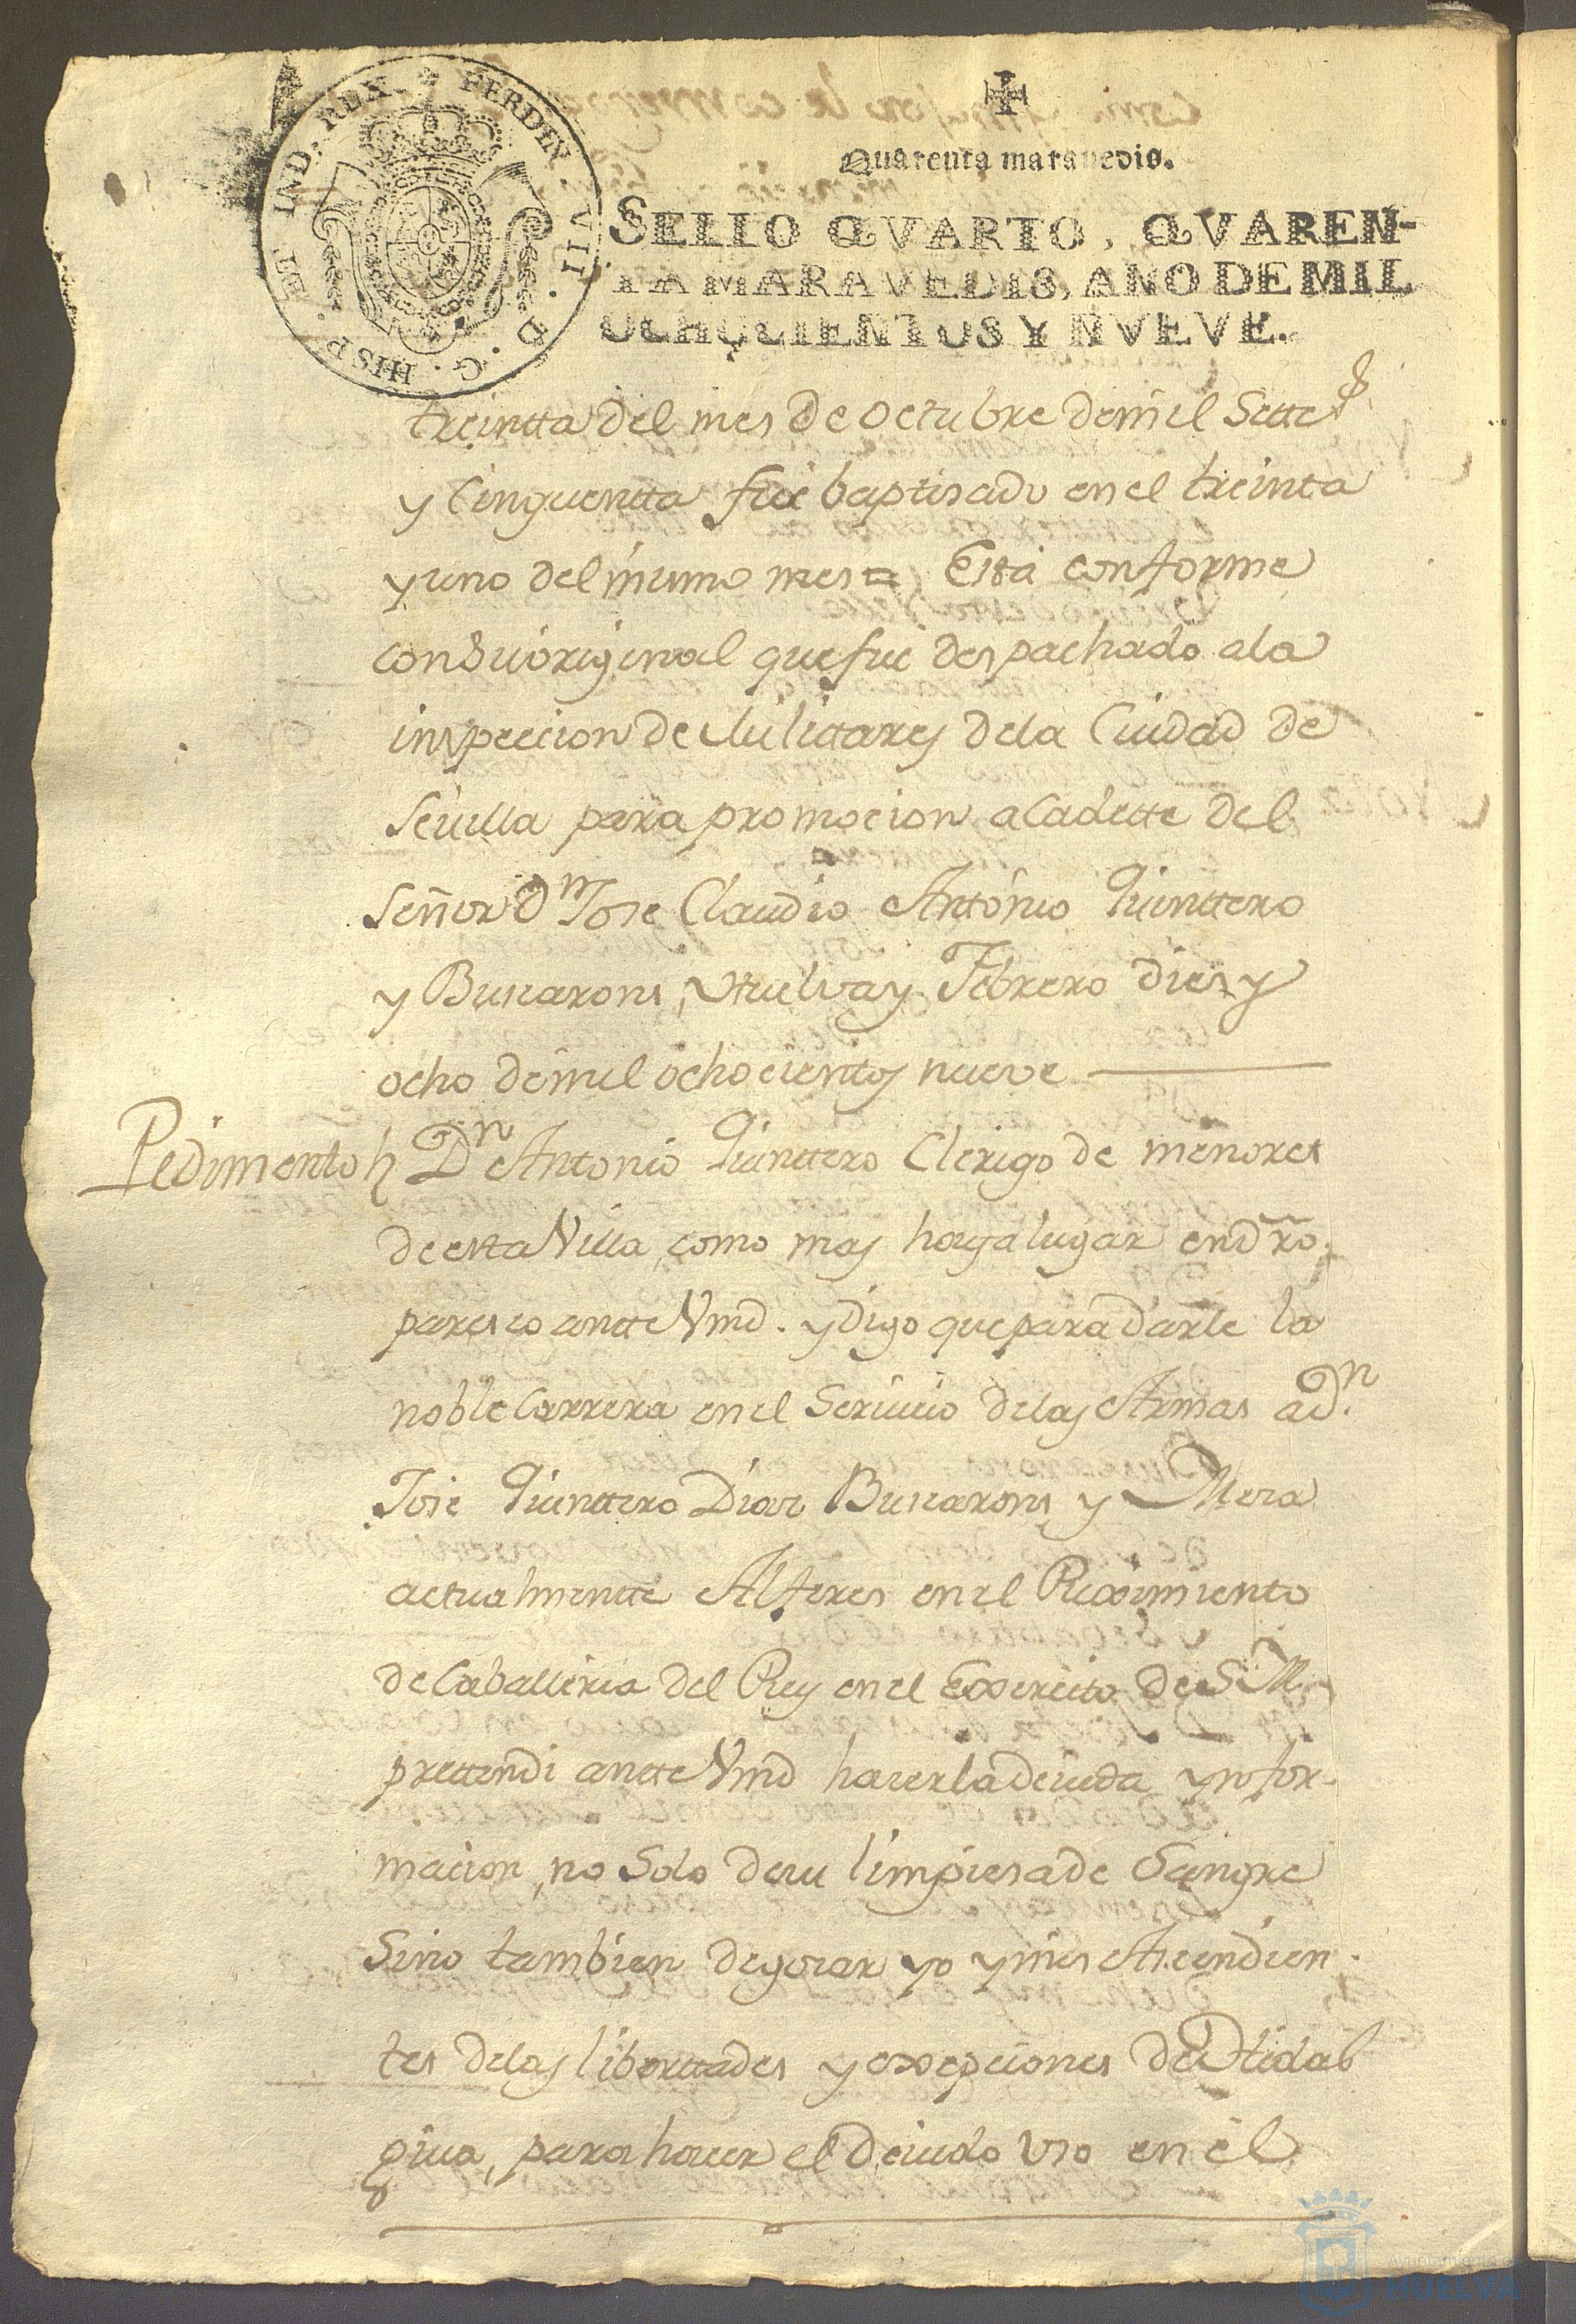 FERDIN. VII. D. G. HISP. ET IND. REX
Quarenta maravedis.
SELLO QVARTO, QVAREN-
TA MARAVEDIS, AÑO DE MIL
OCHOCIENTOS Y NVEVE.
treintta del mes de Octubre demil Sette.s
y Cinquentta fue baptisado en el treinta
y uno del mismo mes = Està conforme
con Su original que fue despachado ala
inspeccion de Militares dela Ciudad de
Sevilla para promocion a Cadette del
Señor Dn Jose Claudio Antonio Quinttero
y Buscarons, Huelva y Febrero dies y
ocho demil ochocientos nueve
Pedimento Dn Antonio Quinttero Clerigo de menores
de esta Villa, como mas haya lugar en dro.
paresco antte Vmd. y Digo que para darle la
noble Carrera en el Servicio delas Armas a Dn.
Jose Quinttero Diaz Buscarons, y Mora
actualmentte Alferes en el Reximiento
de Caballeria del Rey en el Exercito de S M.
prettendi antte Vmd hacer la devida ynfor-
macion, no Solo de su limpiesa de Sangre
Sino tambien de gozar yo y mis Ascendien-
tes delas liberttades y excepciones de Hidal
guia, para hacer el devido uso en èl
Ayuntamiento de
HUELVA